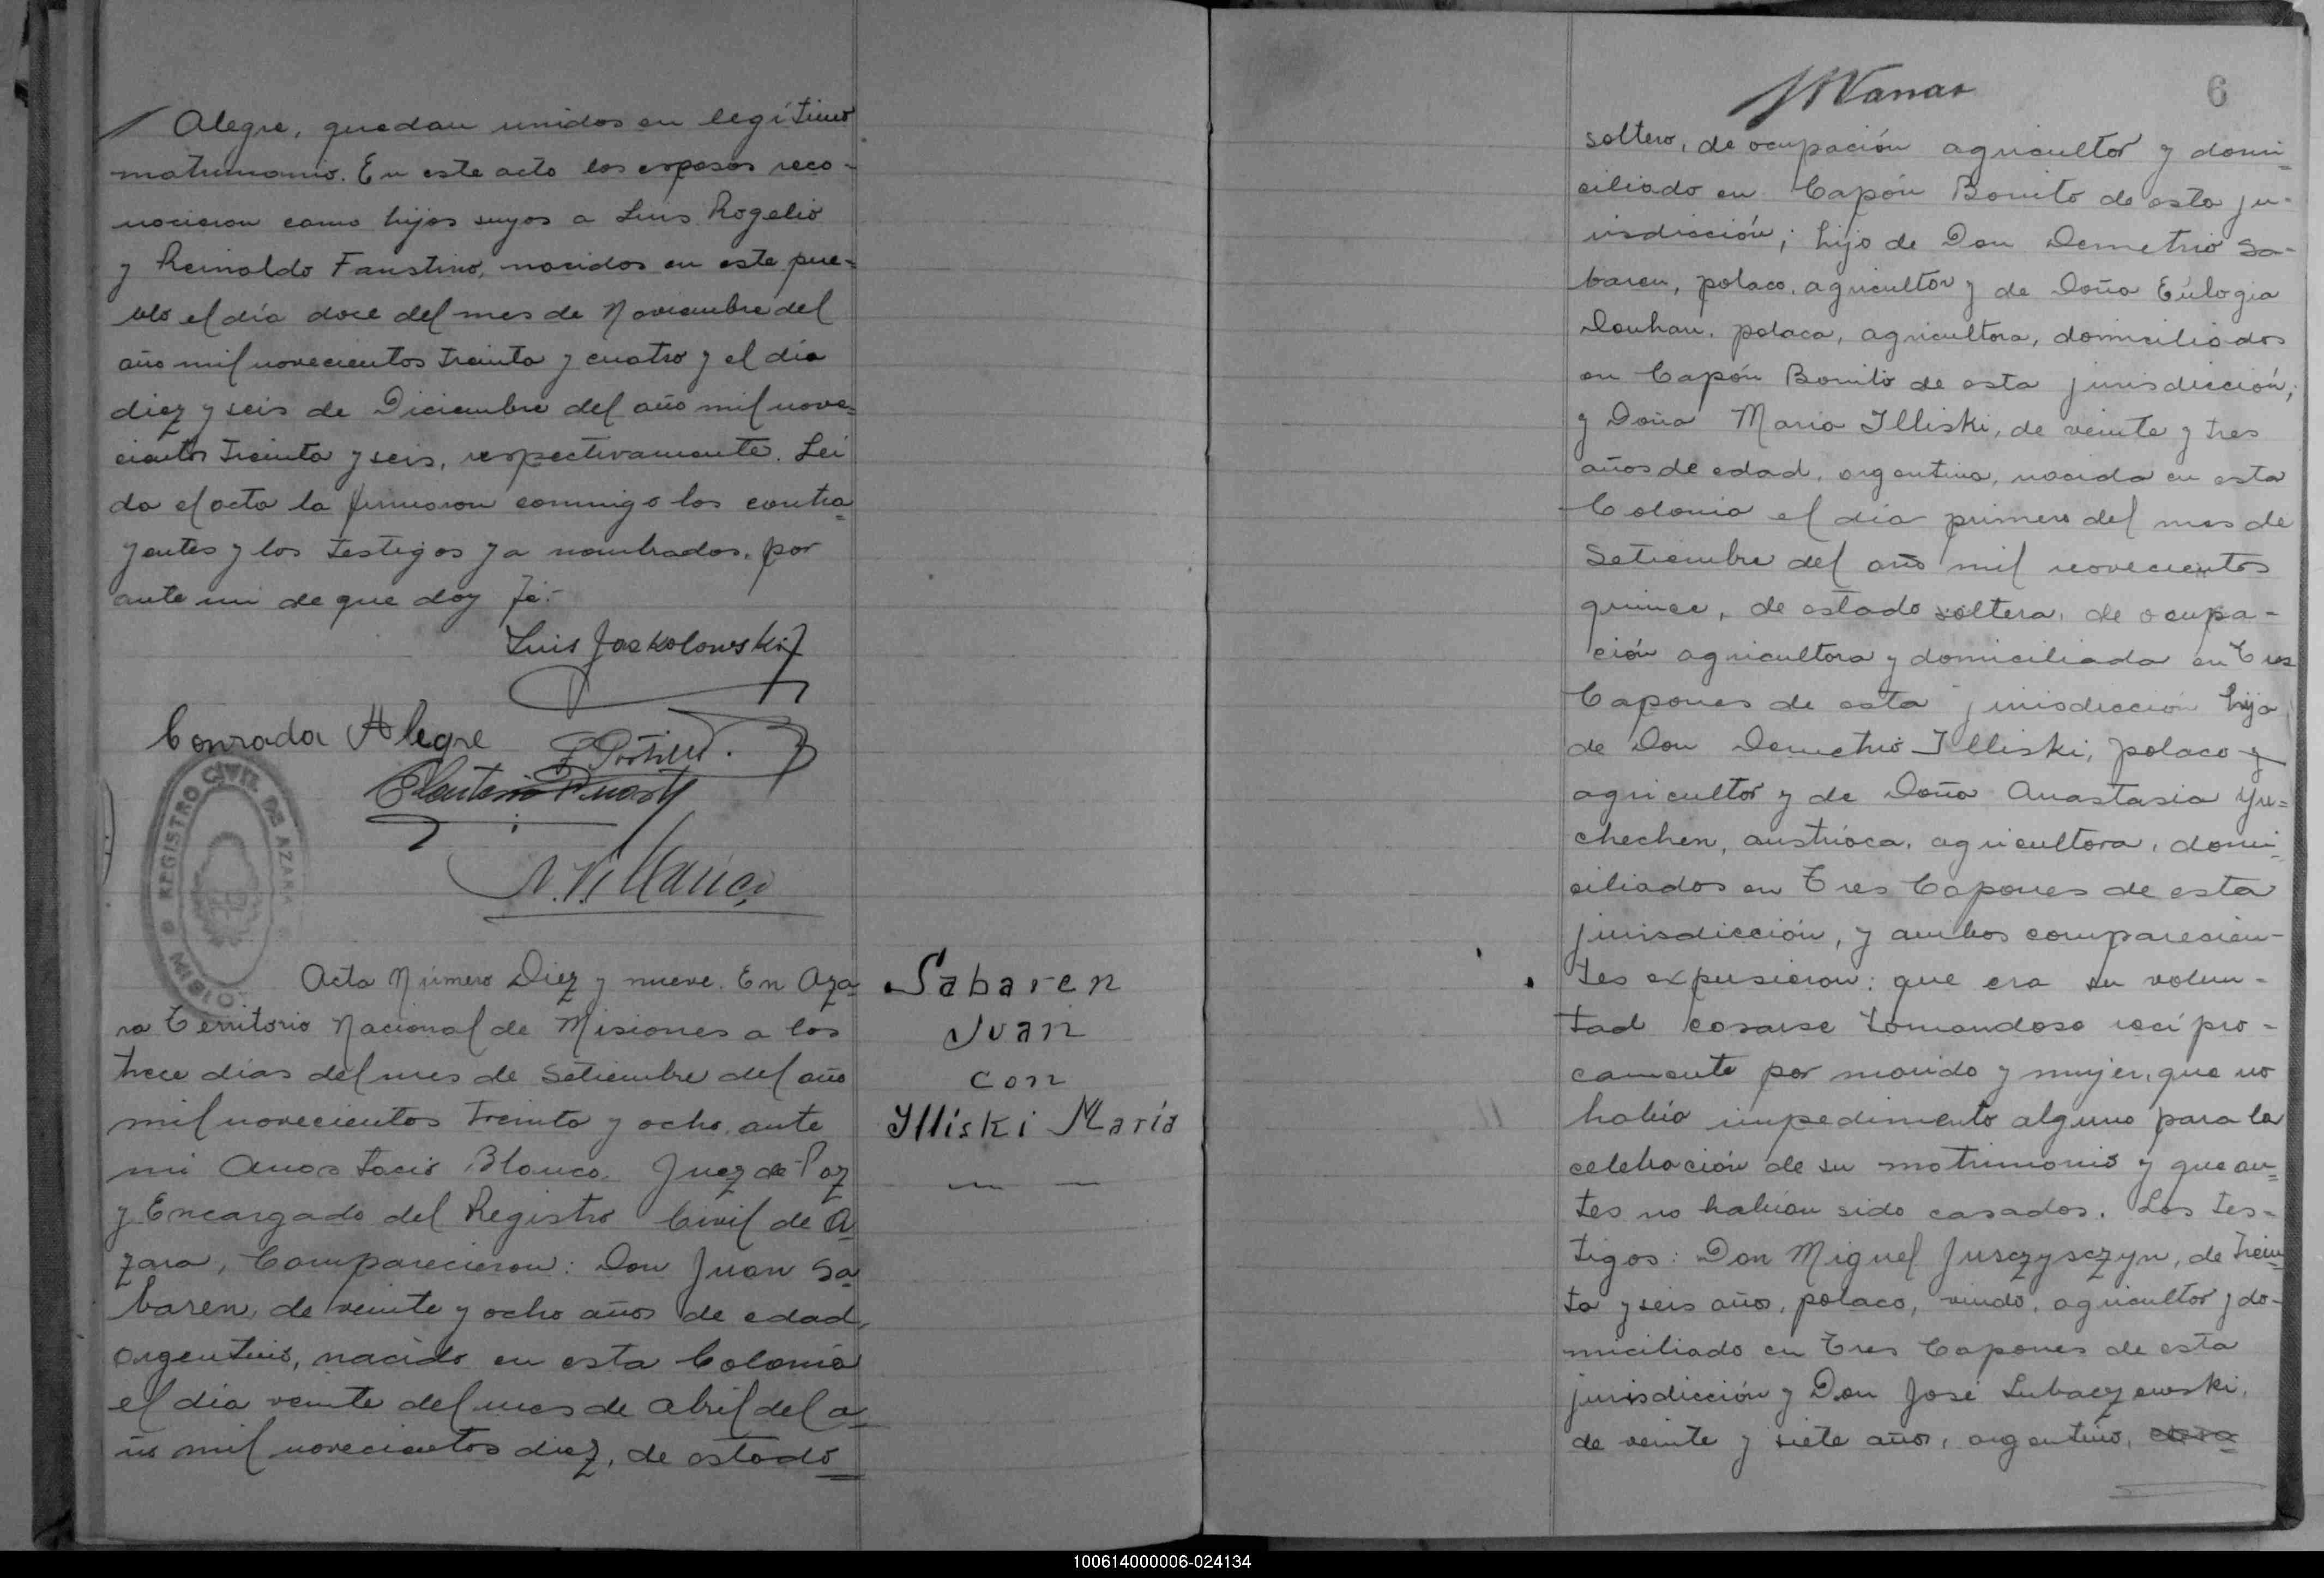 Alegre, quedan unidos en legítimo
matrimonio. En este acto los esposos reco-
nocieron como hijos suyos a Luis Rogelio
y Reinaldo Faustino, nacidos en este pue=
blo el día doce del mes de Noviembre del
año mil novecientos treinta y cuatro y el día
diez y seis de Diciembre del año mil nove=
cientos treinta y seis, respectivamente. Lei
da el acta la firmaron conmigo los contra=
yentes y los testigos ya nombrados, por
ante mi de que doy fé.-
Luis Jaskolowski
Conrada Alegre
REGISTRO CIVIL DE AZARA
MISIO
Acta Número Diez y nueve. En Aza=
ra Territorio Nacional de Misiones a los
trece días del mes de Setiembre del año
mil novecientos treinta y ocho, ante
mi Anastacio Blanco. Juez de Paz
y Encargado del Registro Civil de A=
zara, Comparecieron: Don Juan Sa=
baren, de veinte y ocho años de edad,
argentino, nacido en esta Colonia
el día veinte del mes de Abril del a=
ño mil novecientos diez, de estado
Sabaren
Juan
con
Illiski María
6
soltero, de ocupación agricultor y domi=
ciliado en Capón Bonito de esta ju-
risdicción; hijo de Don Demetrio Sa-
baren, polaco, agricultor y de Doña Eulogia
Douhan, polaca, agricultora, domiciliados
en Capón Bonito de esta jurisdicción;
y Doña Maria Illiski, de veinte y tres
años de edad, argentina, nacida en esta
Colonia el día primero del mes de
Setiembre del año mil novecientos
quince, de estado soltera, de ocupa-
ción agricultora y domiciliada en Tres
Capones de esta jurisdicción hija
de Don Demetrio Illiski, polaco y
agricultor y de Doña Anastasia Yu=
chechen, austriaca, agricultora, domi=
ciliados en Tres Capones de esta
jurisdicción, y ambos comparecien-
tes expusieron: que era su volun-
tad casarse tomandose recipro-
camente por marido y mujer, que no
había impedimento alguno para la
celebración de su matrimonio y que an=
tes no habían sido casados. Los tes-
tigos: Don Miguel Jusczysczyn, de trein=
ta y seis años, polaco, viudo, agricultor y do-
miciliado en Tres Capones de esta
jurisdicción y Don José Lubaczewski,
de veinte y siete años, argentino,
100614000006-024134